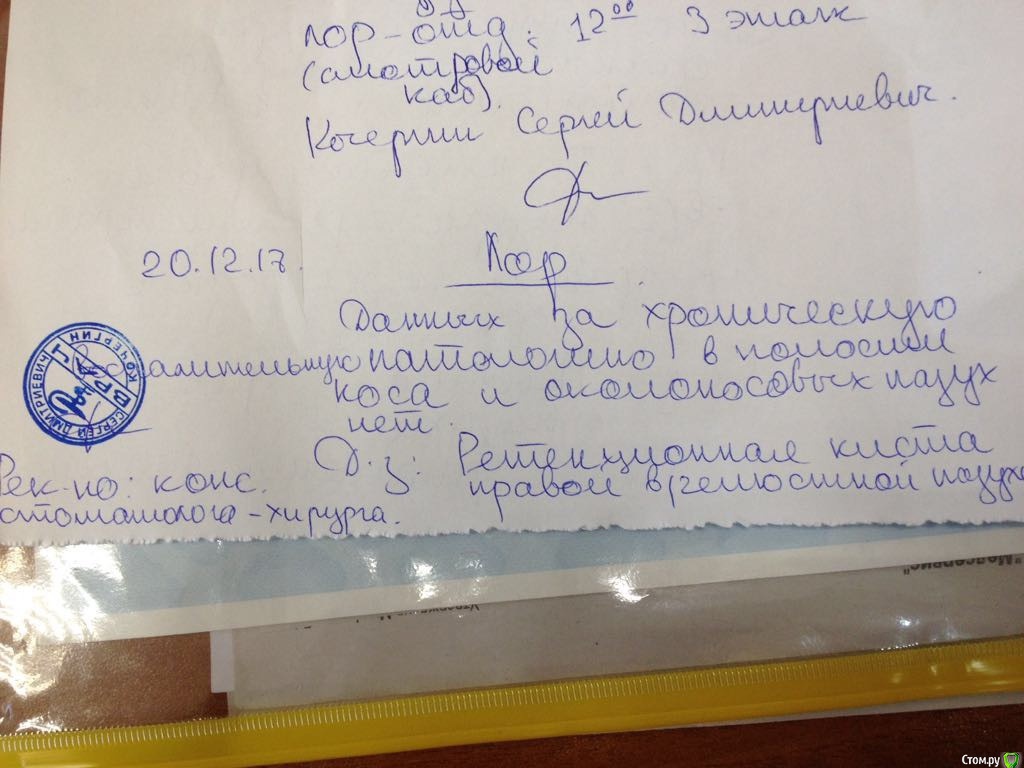 лор-отд. 12⁰⁰ 3 этаж
(смотровой
каб).
Кочергин Сергей Дмитриевич.
20.12.17.
Лор
Данных за хроническую
воспалительную патологию в полости
носа и околоносовых пазух
нет.
Д-з: Ретенционная киста
правой в/челюстной пазухи
Рек-но: конс.
стоматолога-хирурга.
СЕРГЕЙ ДМИТРИЕВИЧ КОЧЕРГИН
ВРАЧ
"Медсервис"
Стом.ру